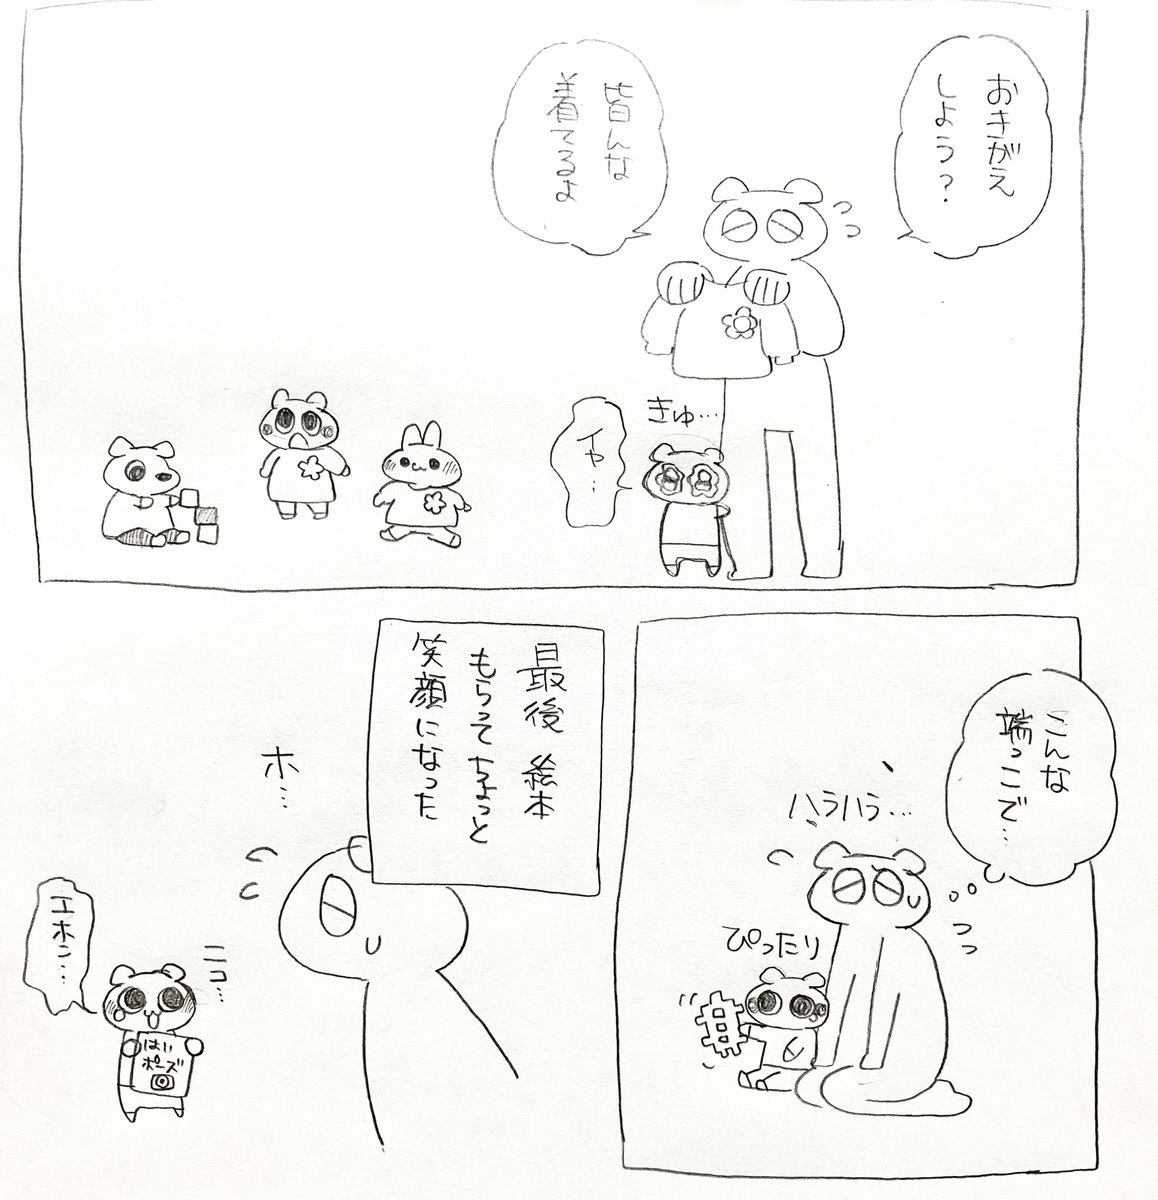 おきがえ
しよう?
皆んな
着てるよ
きゅ…
イヤ…
こんな
端っこで…
ハラハラ…
ぴったり
最後 絵本
もらってちょっと
笑顔になった
ホ…
ニコ…
エホン…
はい
ポーズ